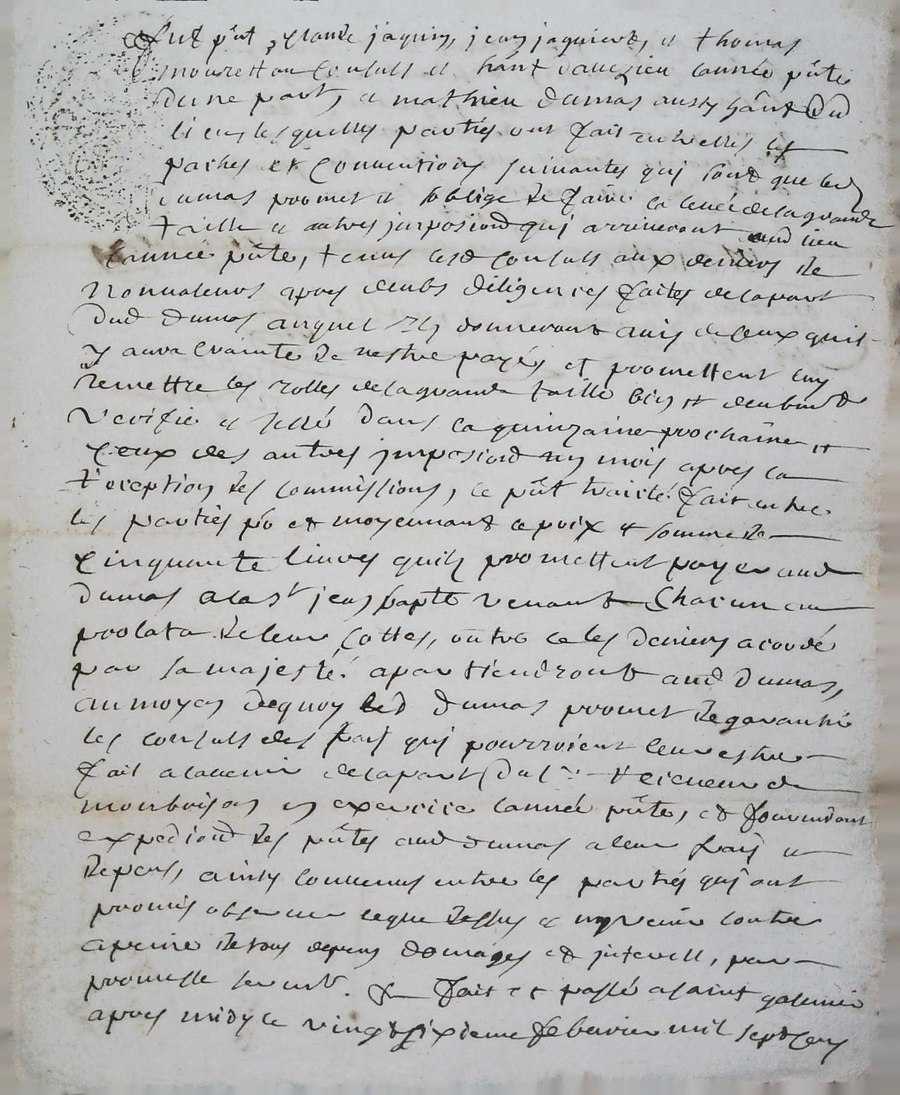 fut pñt, Claude jaquin, jean jaquiert, et thomas
mourettou Consuls et hãnt dauzieu lannée pñte
dune part, et mathieu dumas aussy hãnt dud
lieu lesquelles parties ont fait entrelles les
paches et Conventions suivantes qui sont que led
dumas promet et soblige de faire la levée de la grande
taille et autres jmposiond qui arriveront aud lieu
lannée pñte, tenus lesd Consuls aux deniers de
Nonvaleurs apres deubs diligences faites de la part
dud dumas auquel Ilz donneront avis de ceux quil
y aura Crainte de nestre payés et promettent luy
remettre les rolles de la grande taille bien et deubmt
Verifié et sellé dans la quinzaine prochaine et
Ceux des autres jmposiond un mois apres la
reception des Commissions, le pñt traicté fait entre
les parties põ et moyennant le prix et somme de
Cinquante livres quilz promettent payer aud
dumas a la St jean bapte venant Chacun au
prolata de leur Cottes, outre ce les deniers acordé
par sa majesté apartiendront aud dumas,
au moyen dequoy led dumas promet de garantir
les consuls des frais qui pourroient leur estre
fait a ladvenir de la part du Sr receveur de
monbrison en exercice lannée pñte, et fourniront
expediond des pñtes aud dumas a leur frais et
depens, ainsy Convenus entre les parties qui ont
promis observer ce que dessus et ny venir contre
a peine de tous depens domages et jnterests, par
promesse sermt. fait et passé a saint galmier
apres midy le vingt sixieme febvrier mil sept Cens